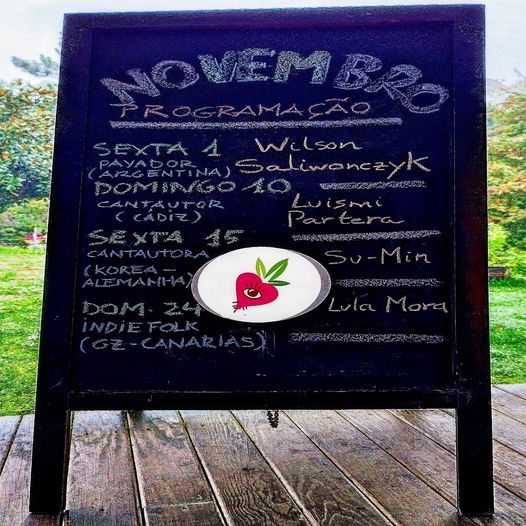 NOVEMBRO
PROGRAMAÇÃO
SEXTA 1
PAYADOR
(ARGENTINA)
Wilson
Saliwonczyk
DOMINGO 10
CANTAUTOR
(CÁDIZ)
Luismi
Partera
SEXTA 15
CANTAUTORA
(KOREA-
ALEMANHA)
Su-Min
DOM. 24
INDIE FOLK
(GZ-CANARIAS)
Lula Mora